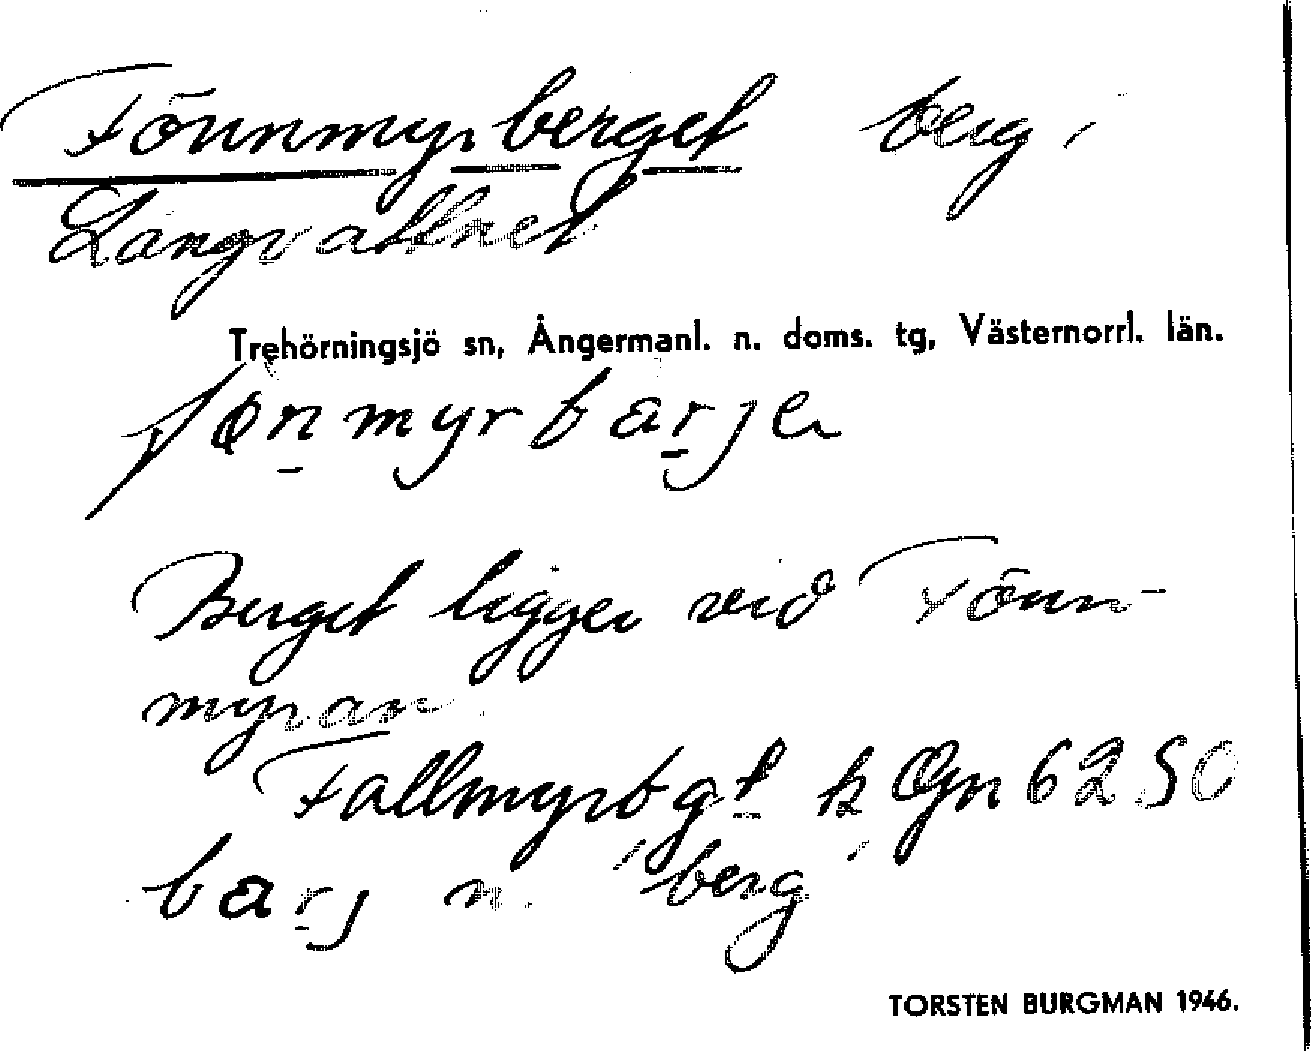 Fönnmyrberget berg,
Långvattnet
Trehörningsjö sn, Ångermanl. n. doms. tg, Västernorrl. län.
Berget ligger vid Fönn-
myran
Fallmyrbgt k Ögn 6250
barj n. "berg"
TORSTEN BURGMAN 1946.